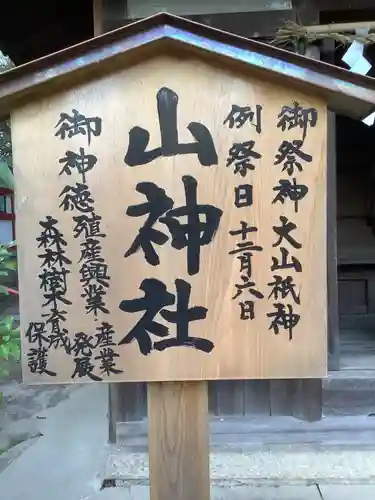 御祭神 大山祇神
例祭日 十二月六日
山神社
御神徳 殖産興業 産業発展
森林樹木育成保護